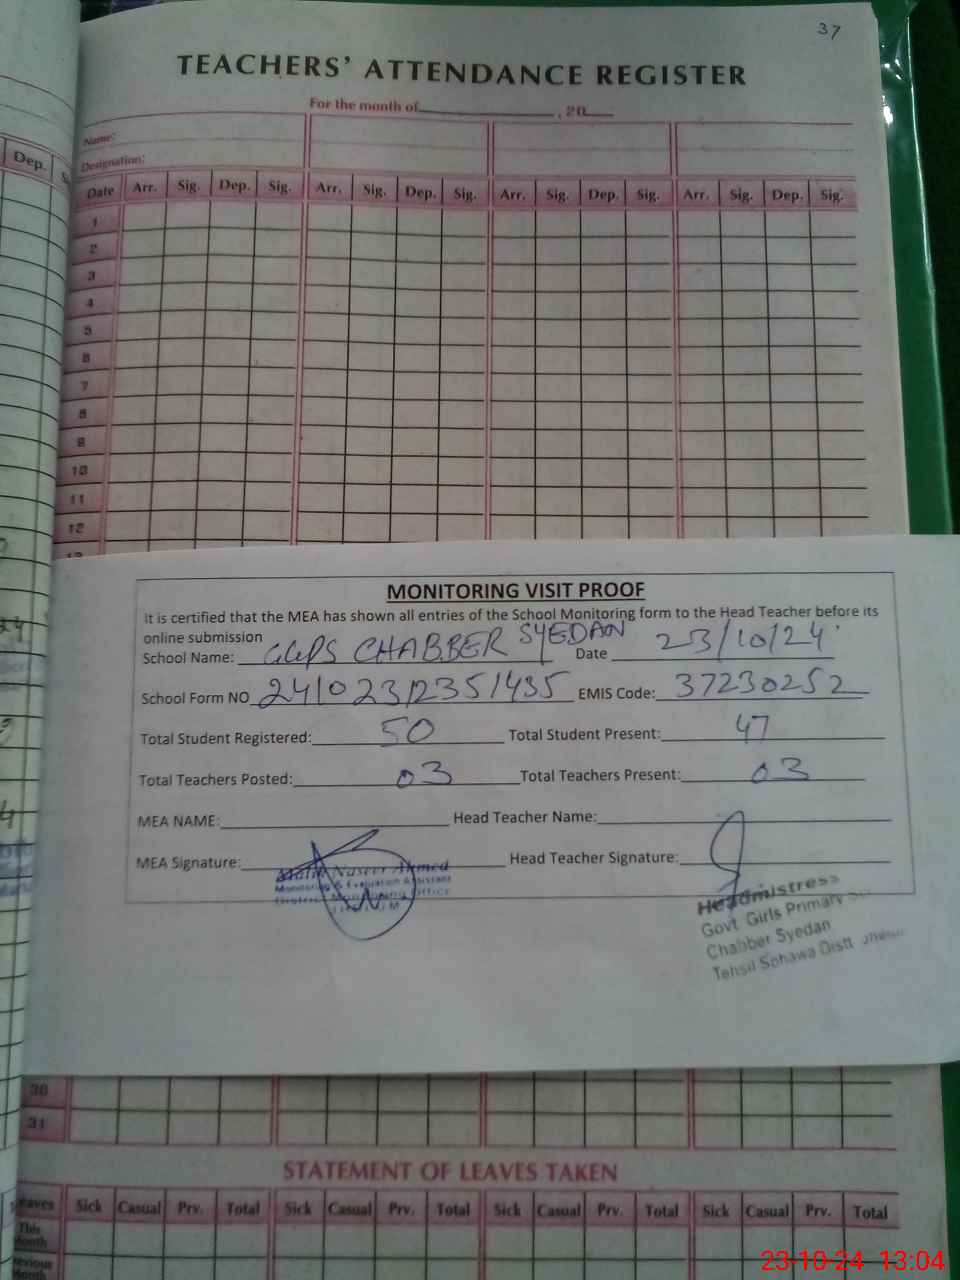 37
TEACHERS' ATTENDANCE REGISTER
For the month of , 20
Name:
Designation:
Dep.
Date Arr. Sig. Dep. Sig. Arr. Sig. Dep. Sig. Arr. Sig. Dep. Sig. Arr. Sig. Dep. Sig.
1
2
3
4
5
6
7
8
9
10
11
12
MONITORING VISIT PROOF
It is certified that the MEA has shown all entries of the School Monitoring form to the Head Teacher before its
online submission
School Name: GGPS CHABBER SYEDAN Date 23/10/24
School Form NO EMIS Code: 37230252
Total Student Registered: 50 Total Student Present: 47
Total Teachers Posted: 03 Total Teachers Present: 03
MEA NAME: Head Teacher Name:
MEA Signature: Head Teacher Signature:
Malik Naseer Ahmed
Monitoring & Evaluation Assistant
District Monitoring Office
Headmistress
Govt Girls Primary
Chabber Syedan
Tehsil Sohawa Distt
30
31
STATEMENT OF LEAVES TAKEN
Sick Casual Prv. Total Sick Casual Prv. Total Sick Casual Prv. Total Sick Casual Prv. Total
This
Month
23-10-24 13:04